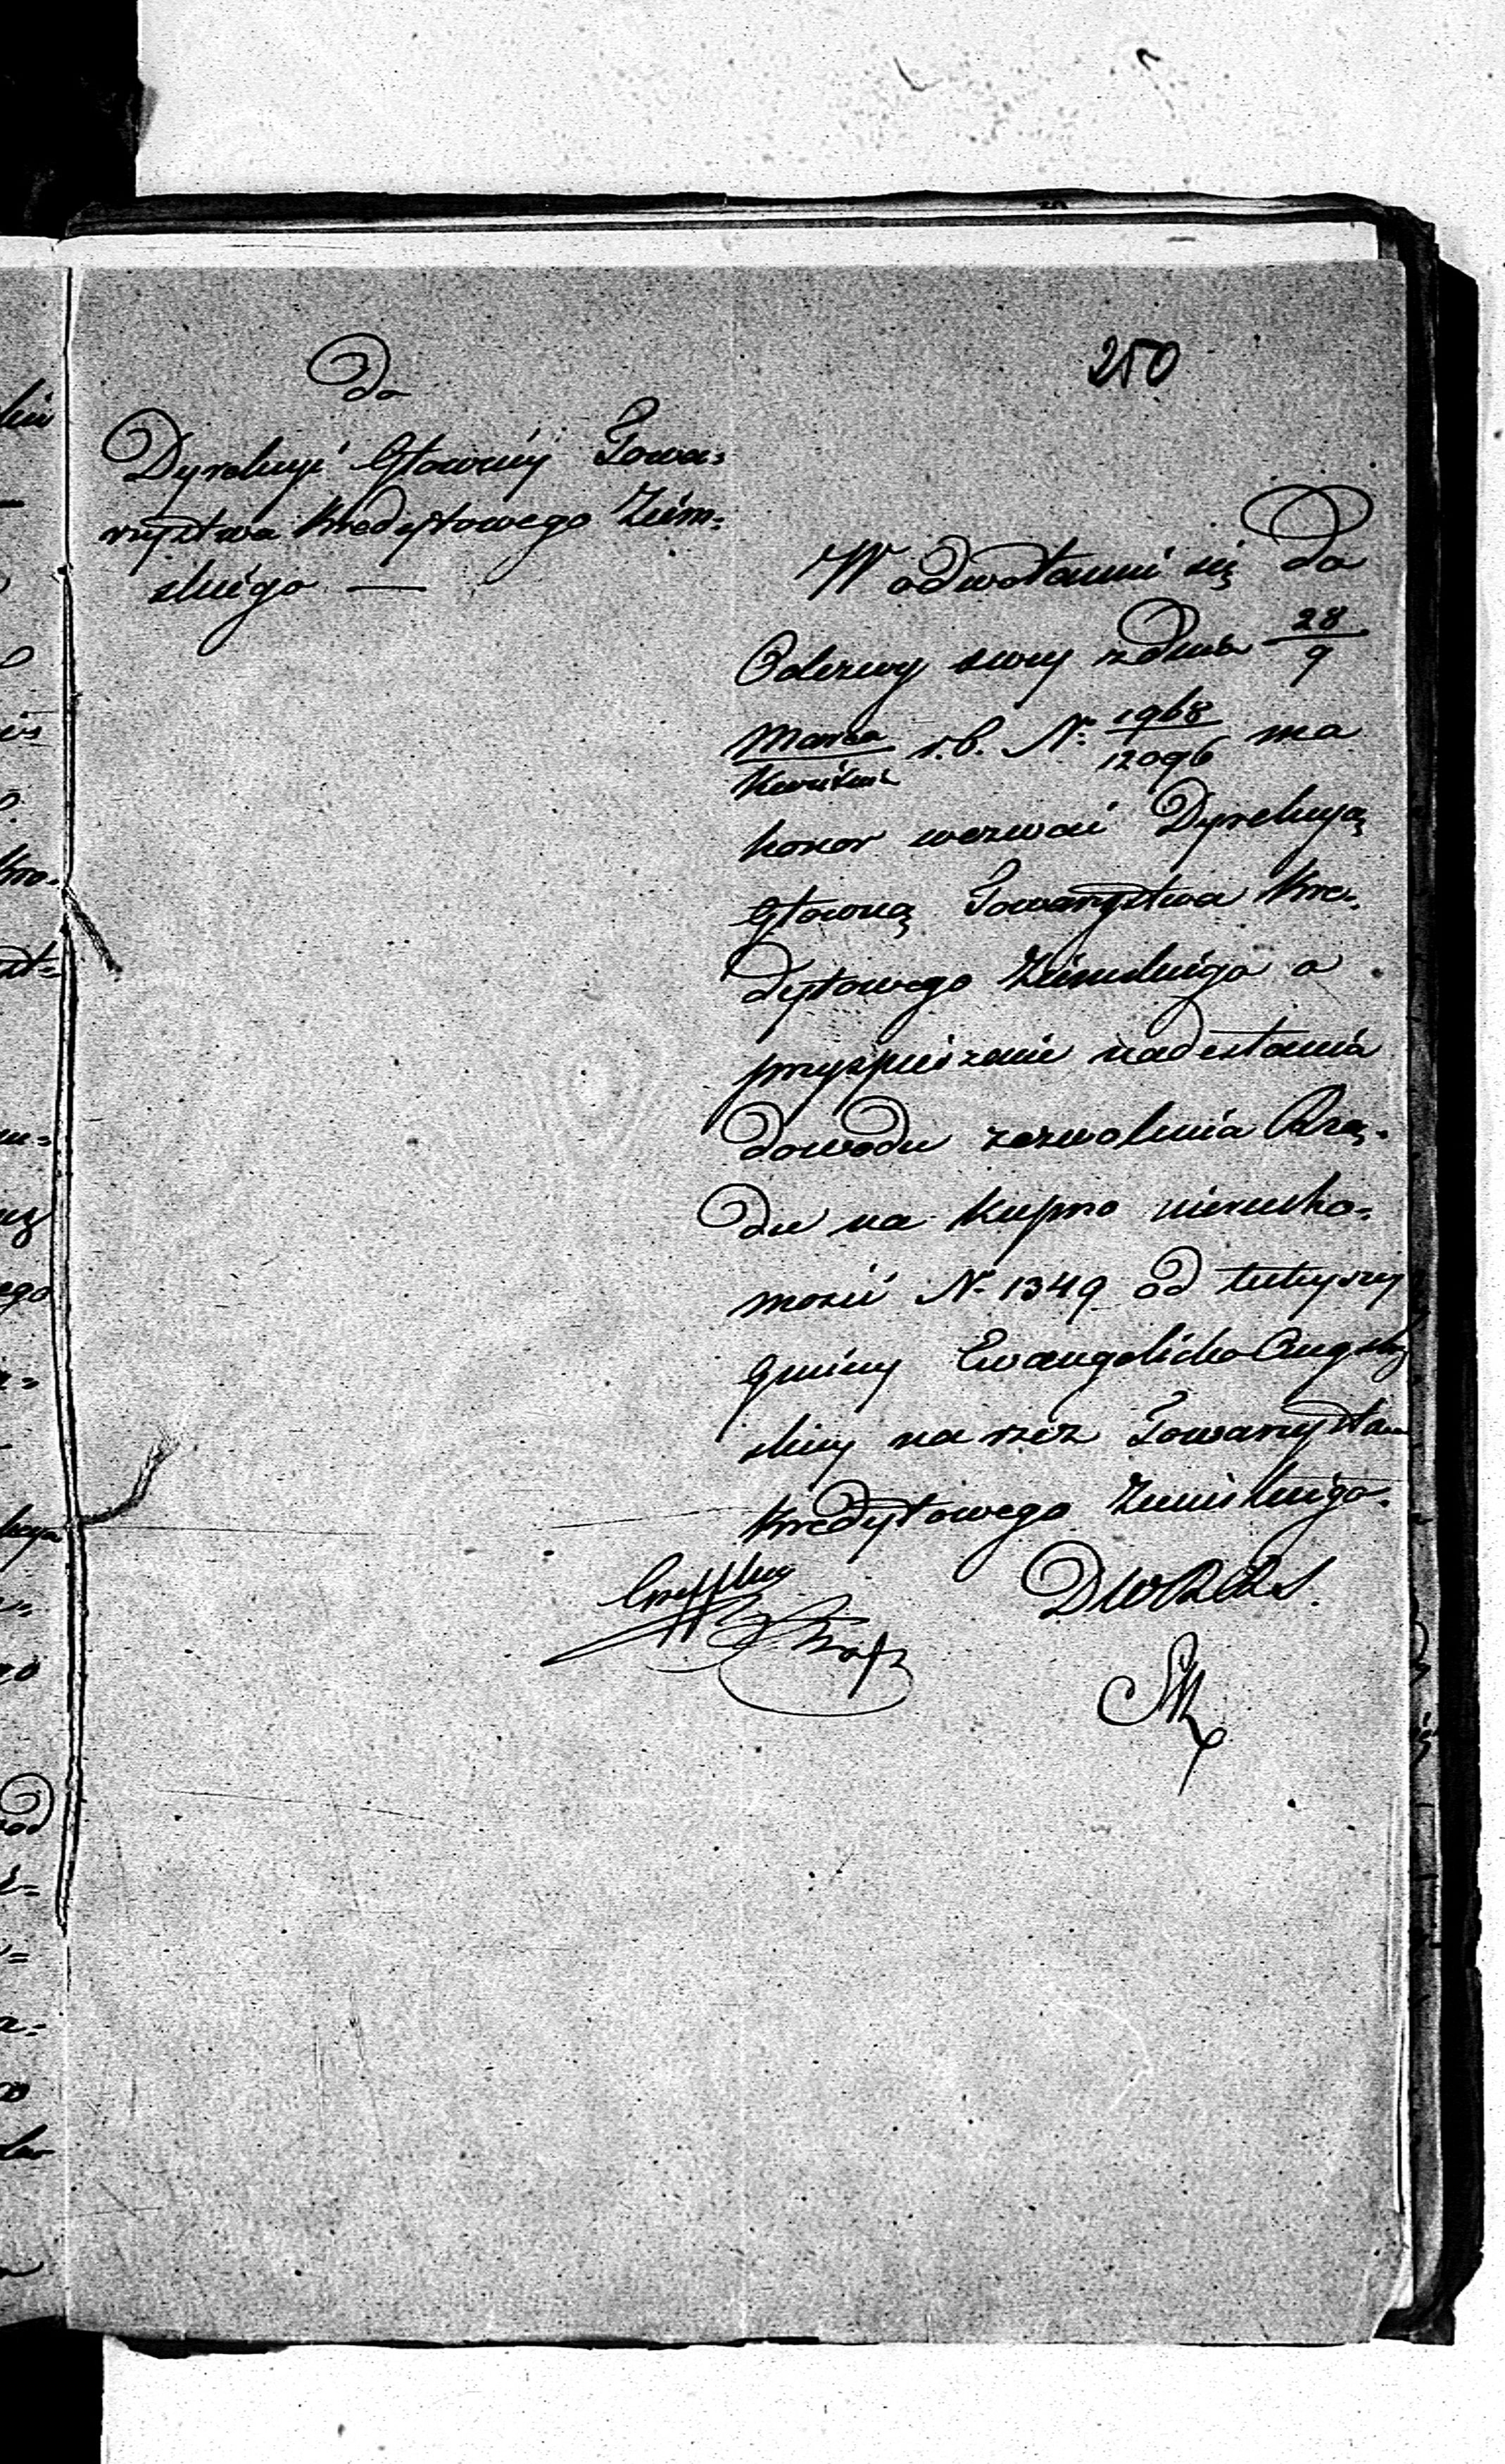 250
Do
Dyrekcyi Głowney Towa=
rzystwa Kredytowego Ziem=
skiego —
W odwołaniu się do
Odezwy swey z dnia 28/9
Marca/Kwietnia r.b. N. 1968/12096 ma
honor wezwać Dyrekcyą
Głowną Towarzystwa Kre=
dytowego Ziemskiego o
przyspieszenie nadesłania
dowodu zezwolenia Rzą=
du na kupno nierucho=
mości N. 1349 od tuteyszey
Gminy Ewangelicko Augsbur
skiey na rzecz Towarzystwa
Kredytowego Ziemskiego.